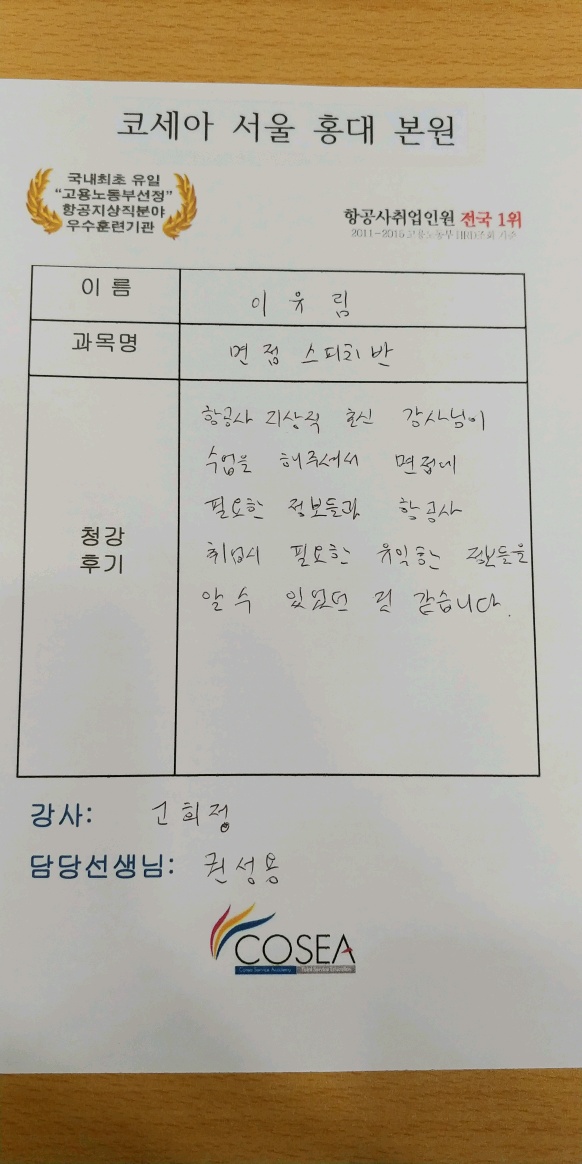 코세아 서울 홍대 본원
국내최초 유일
“고용노동부선정”
항공지상직분야
우수훈련기관
항공사취업인원 전국 1위
2011~2015고용노동부 HRD조회 기준
이 름
이 유 림
과목명
면접 스피치반
청강
후기
항공사 지상직 출신 강사님이
수업을 해주셔서 면접에
필요한 정보들과 항공사
취업시 필요한 유익한 정보들을
알 수 있었던 것 같습니다.
강사: 고희정
담당선생님: 권성용
COSEA
Cosea Service Academy Total Service Education